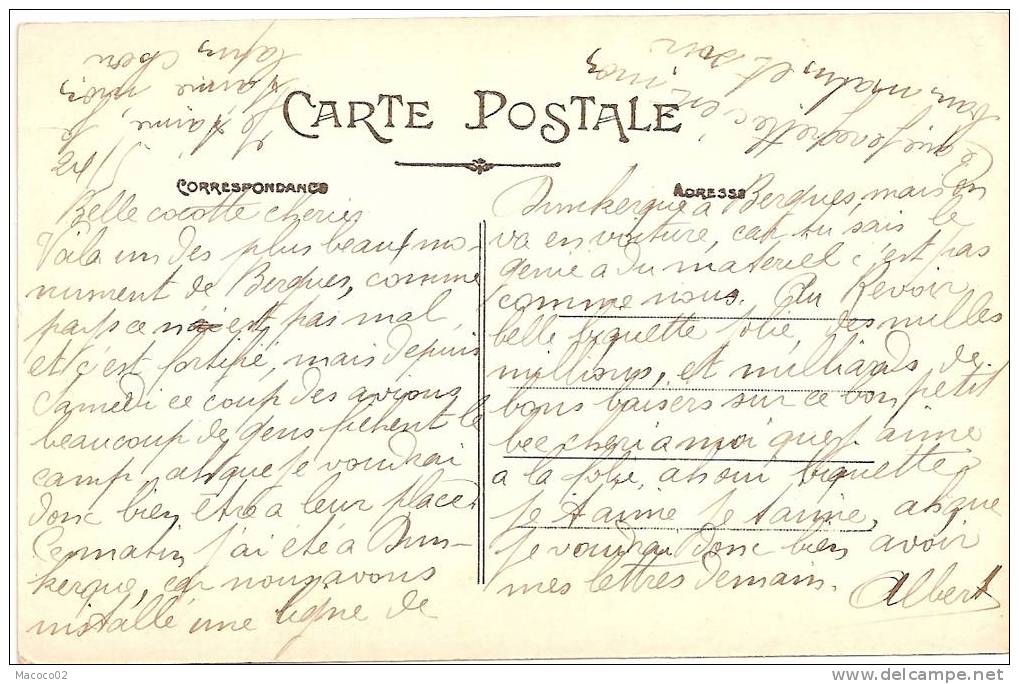 CARTE POSTALE
CORRESPONDANCE
ADRESSE
24/5
Belle cocotte cheries
Voila un des plus beaux mo-
nument de Bergues, comme
parts ce n'est pas mal,
et c'est fortifié, mais depuis
Samedi ce coup des avions
beaucoup de gens fichent le
camp, ah que je voudrai
donc bien être a leur place
Ce matin j'ai été à Dun-
kerque, car nous avons
installé une ligne de
Dunkerque à Bergues, mais on
va en voiture, car tu sais le
genie a du materiel c'est pas
comme nous. Au Revoir
belle biquette jolie, des milles
millions, et milliards de
bons baisers sur ce bon petit
bec cheri a moi que j'aime
a la folie, ah oui biquette
je t'aime je t'aime, ah que
je voudrai donc bien avoir
mes lettres demain.
Albert
matin et soir
je t'aime